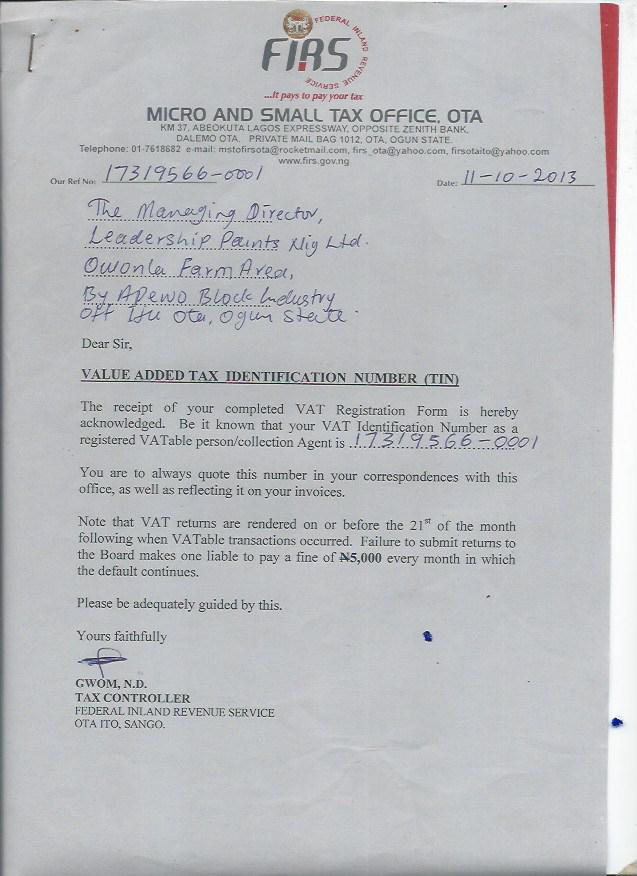 FEDERAL INLAND REVENUE SERVICE
FIRS
...It pays to pay your tax
MICRO AND SMALL TAX OFFICE, OTA
KM 37, ABEOKUTA LAGOS EXPRESSWAY, OPPOSITE ZENITH BANK,
DALEMO OTA, PRIVATE MAIL BAG 1012, OTA, OGUN STATE.
Telephone: 01-7618682 e-mail: mstofirsota@rocketmail.com, firs_ota@yahoo.com, firsotaito@yahoo.com
www.firs.gov.ng
Our Ref No: 17319566-0001 Date: 11-10-2013
The Managing Director,
Leadership Paints Nig Ltd.
Owonla Farm Area,
By Adewo Block Industry
Off Itu Ota, Ogun State.
Dear Sir,
VALUE ADDED TAX IDENTIFICATION NUMBER (TIN)
The receipt of your completed VAT Registration Form is hereby
acknowledged. Be it known that your VAT Identification Number as a
registered VATable person/collection Agent is 17319566-0001
You are to always quote this number in your correspondences with this
office, as well as reflecting it on your invoices.
Note that VAT returns are rendered on or before the 21st of the month
following when VATable transactions occurred. Failure to submit returns
to the Board makes one liable to pay a fine of ₦5,000 every month in which
the default continues.
Please be adequately guided by this.
Yours faithfully
GWOM, N.D.
TAX CONTROLLER
FEDERAL INLAND REVENUE SERVICE
OTA ITO, SANGO.